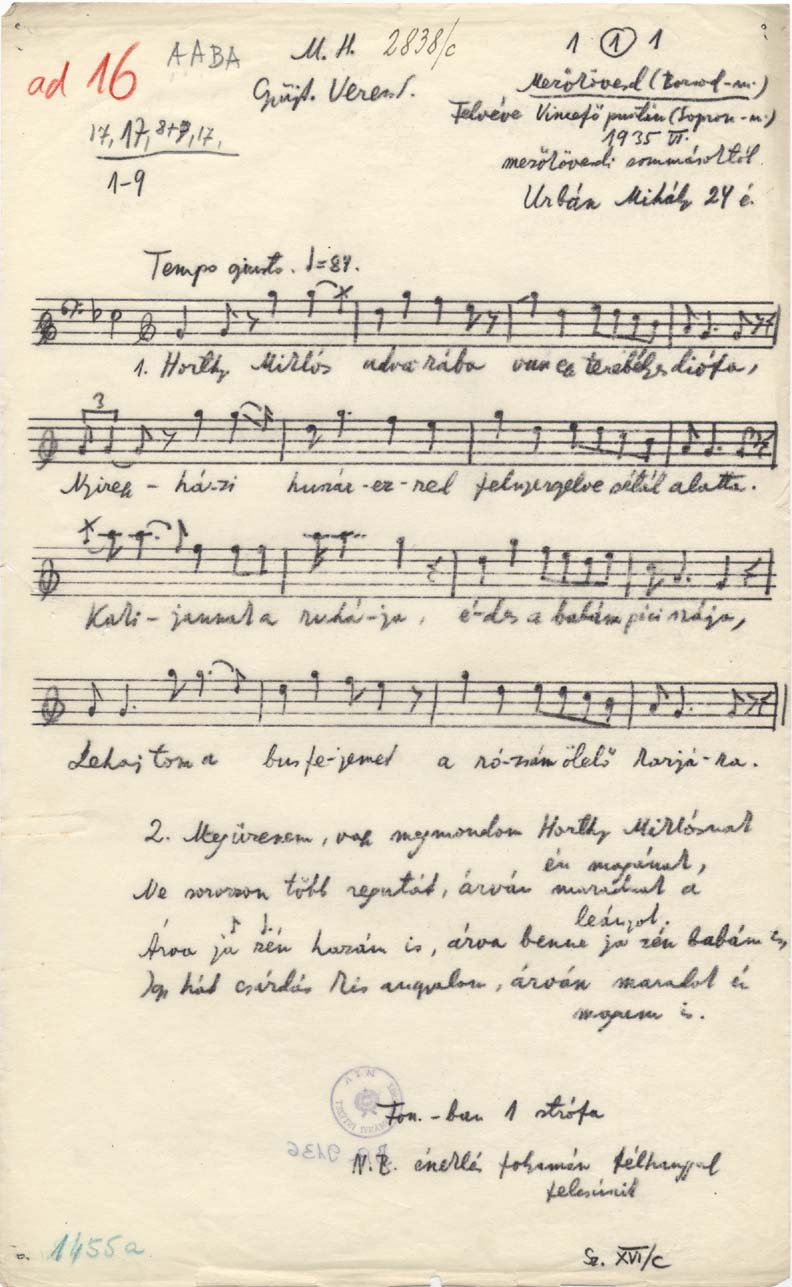 ad 16 AABA M. H. 2838/c 1 1 1
Gyűjt. Veress S. Mezőkövesd (Borsod-m.)
17, 17, 8+9, 17. Felvéve Vincefő pusztán (Sopron-m.)
1-9 1935 VI.
mezőkövesdi sommásoktól.
Urbán Mihály 24 é.
Tempo giusto. ♩=84.
1. Horthy Miklós udvarába van egy terebélyes diófa,
3
Nyiregy-há-zi huszár-ez-red felnyergelve sétál alatta.
Kati-jannak a ruhá-ja, é-des a babám pici szája,
Lehajtom a bus fe-jemet a ró-zsám ölelő karjá-ra.
2. Megüzenem, vagy megmondom Horthy Miklósnak
én magának,
Ne sorozzon több regutát, árván maradnak a
leányok.
Árva ja zén hazám is, árva benne ja zén babám is,
Igy hát csárdás kis angyalom, árván maradok én
magam is.
Fon.-ban 1 strófa
N.B. éneklés folyamán félhanggal
felcsúszik
1455a
Sz. XVI/c